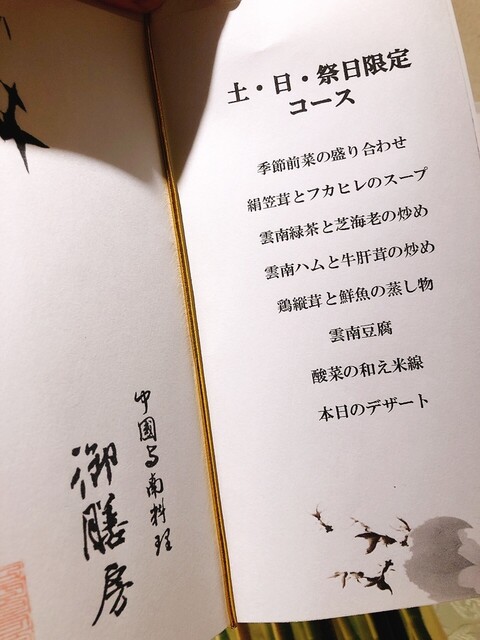 土・日・祭日限定
コース
季節前菜の盛り合わせ
絹笠茸とフカヒレのスープ
雲南緑茶と芝海老の炒め
雲南ハムと牛肝茸の炒め
鶏縦茸と鮮魚の蒸し物
雲南豆腐
酸菜の和え米線
本日のデザート
中國雲南料理
御膳房